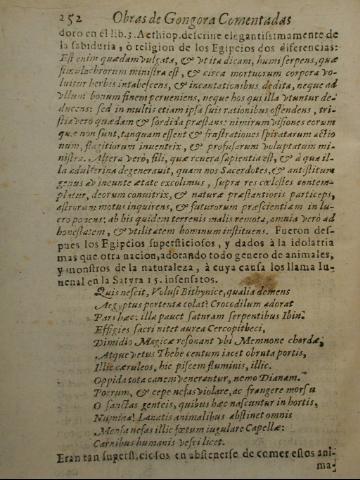 252 Obras de Gongora Comentadas
doro en el lib. 3. Aethiop. descriue elegantissimamente de
la sabiduria, ò religion de los Egipcios dos diferencias:
Est enim quædam vulgata, & vt ita dicam, humi serpens, quæ
simulachrorum ministra est, & circa mortuorum corpora vo-
luitur herbis intabescens, & incantationibus dedita, neque ad
vllum bonum finem perueniens, neque hos qui illa vtuntur de-
ducens: sed in multis etiam ipsa suis rationibus offendens, tri-
stia verò quædam & sordida præstans: nimirum visiones eorum
quæ non sunt, tanquam essent & frustrationes speratarum actio
num, flagitiorum inuentrix, & profusarum voluptatum mi-
nistra. Altera verò, fili, quæ reuera sapientia est, & à qua il-
la adulterina degenerauit, quam nos Sacerdotes, & antistitum
genus ab ineunte ætate excolimus, supra res cælestes contem-
platur, deorum comitrix, & naturæ præstantioris particeps,
astrorum motus inquirens, & futurorum præscientiam in lu-
cro ponens: ab his quidem terrenis malis remota, omnia verò ad
honestatem, & vtilitatem hominum instituens. Fueron des-
pues los Egipcios supersticiosos, y dados à la idolatria
mas que otra nacion, adorando todo genero de animales,
y monstros de la naturaleza, à cuya causa los llama Iu-
uenal en la Satyra 15. insensatos.
Quis nescit, Volusi Bithynice, qualia demens
Aegyptus portenta colat? Crocodilum adorat
Pars hæc: illa pauet saturam serpentibus Ibin.
Effigies sacri nitet aurea Cercopitheci,
Dimidio Magicæ resonant vbi Memnone chordæ,
Atque vetus Thebe centum iacet obruta portis,
Illic cæruleos, hic piscem fluminis, illic.
Oppida tota canem venerantur, nemo Dianam.
Porrum, & cepe nefas violare, ac frangere morsu
O sanctas genteis, quibus hæc nascuntur in hortis,
Numina! Lanatis animalibus abstinet omnis
Mensa nefas illic fœtum iugulare Capellæ:
Carnibus humanis vesci licet.
Eran tan supersticiosos en abstenerse de comer estos ani-
ma-